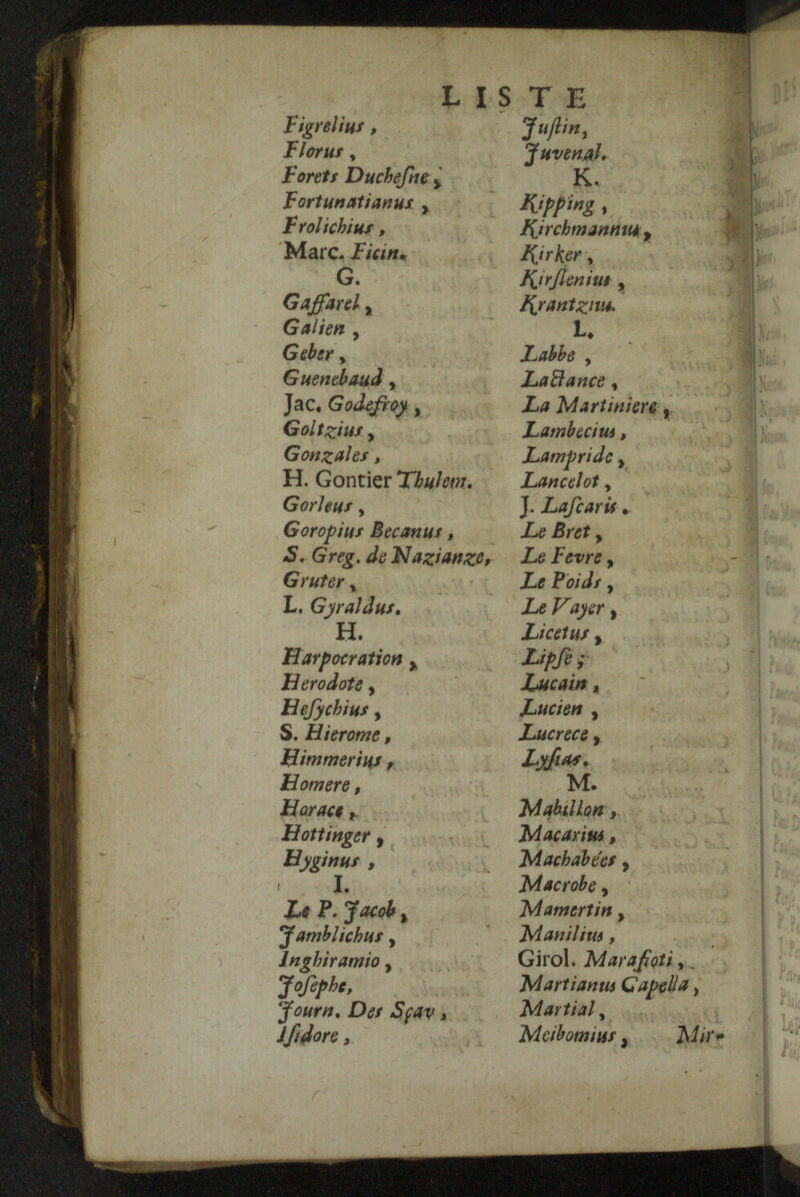 LISTE
Figrelius,
Florus,
Forets Duchesne,
Fortunatianus,
Frolichius,
Marc. Ficin.
G.
Gaffarel,
Galien,
Geber,
Guenebaud,
Jac. Godefroy,
Goltzius,
Gonzales,
H. Gontier Thulem.
Gorleus,
Goropius Becanus,
S. Greg. de Nazianze,
Gruter,
L. Gyraldus.
H.
Harpocration,
Herodote,
Hesychius,
S. Hierome,
Himmerius,
Homere,
Horace,
Hottinger,
Hyginus,
I.
Le P. Jacob,
Jamblichus,
Inghiramio,
Josephe,
Journ. Des Sçav,
Isidore,
Justin,
Juvenal.
K.
Kipping,
Kirchmannus,
Kirker,
Kirstenius,
Krantzius.
L.
Labbe,
Lactance,
La Martiniere,
Lambecius,
Lampride,
Lancelot,
J. Lascaris.
Le Bret,
Le Fevre,
Le Poids,
Le Vayer,
Licetus,
Lipse;
Lucain,
Lucien,
Lucrece,
Lysias.
M.
Mabillon,
Macarius,
Machabées,
Macrobe,
Mamertin,
Manilius,
Girol. Marafioti,
Martianus Capella,
Martial,
Meibomius,
Mir-